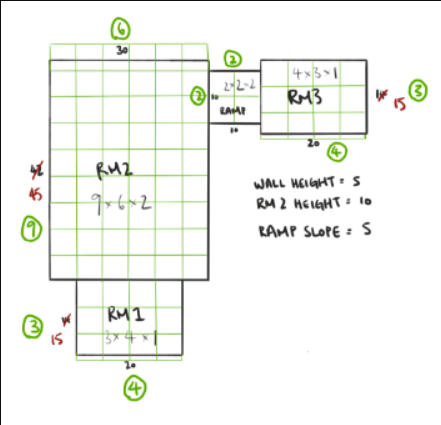 6
30
2
2×2=2
2
10
RAMP
10
4×3×1
RM3
15
3
20
4
45
RM2
9×6×2
9
WALL HEIGHT = 5
RM 2 HEIGHT = 10
RAMP SLOPE = 5
3
15
RM1
3×4×1
20
4